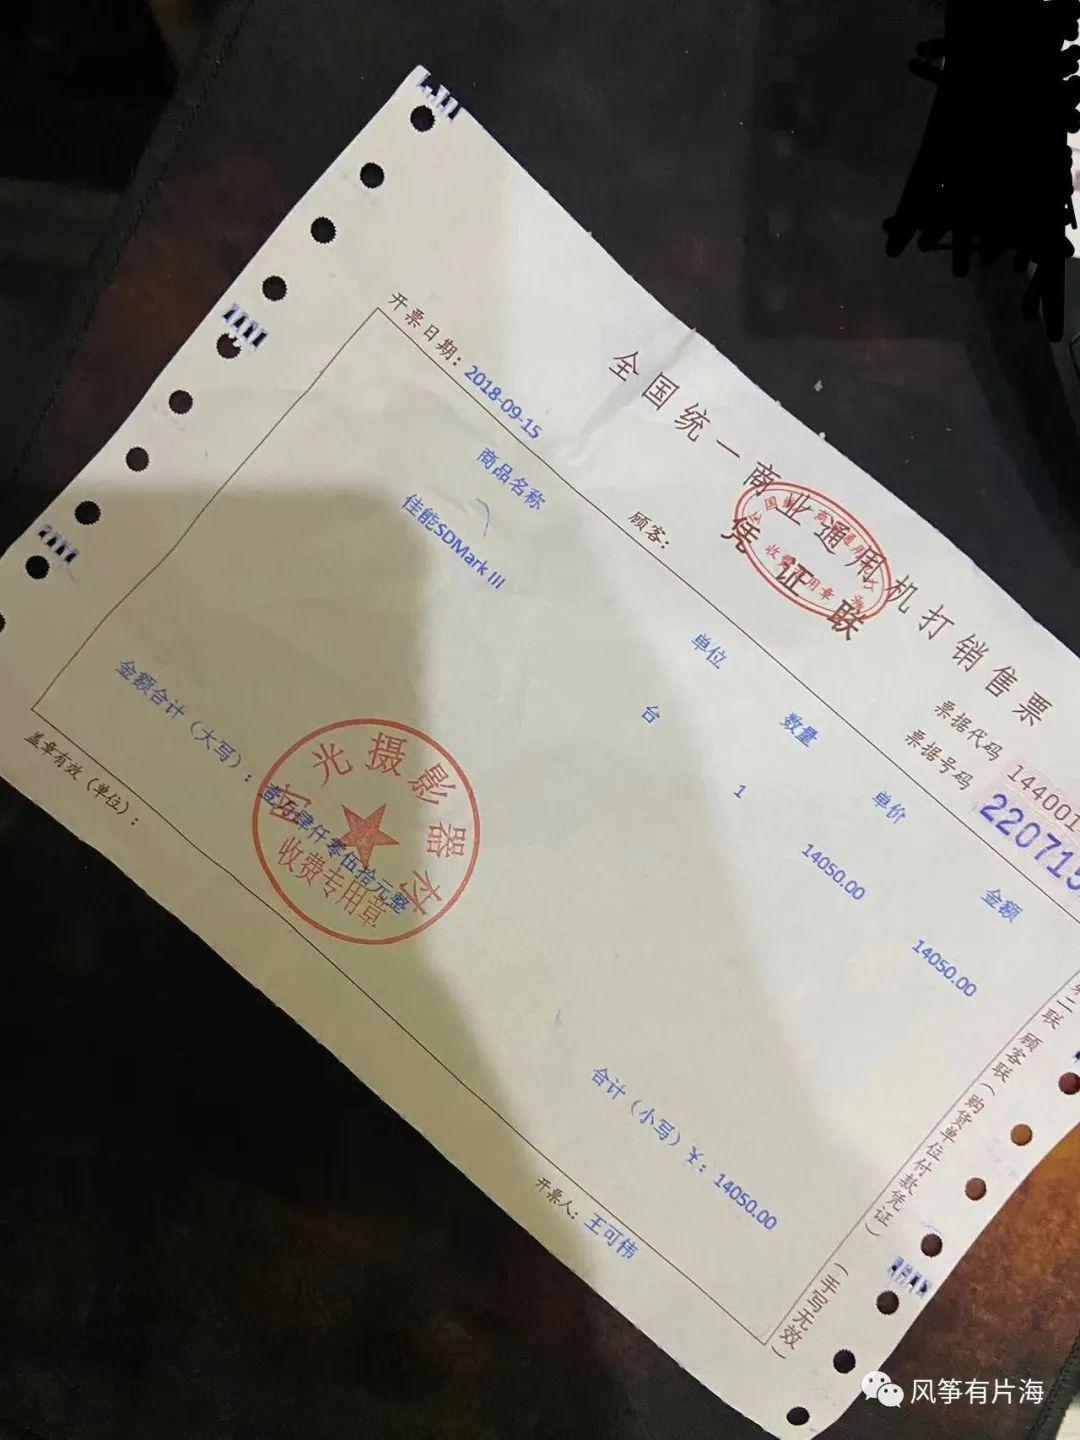 全国统一商业通用机打销售票
凭证联
票据代码 144001
票据号码 220715
开票日期：2018-09-15
顾客：
商品名称 单位 数量 单价 金额
佳能SDMark III 台 1 14050.00 14050.00
金额合计（大写）：壹万肆仟零伍拾元整
合计（小写）￥：14050.00
盖章有效（单位）：
开票人：王可伟
第二联 顾客联（购货单位付款凭证）
（手写无效）
光摄影器材
收费专用章
风筝有片海